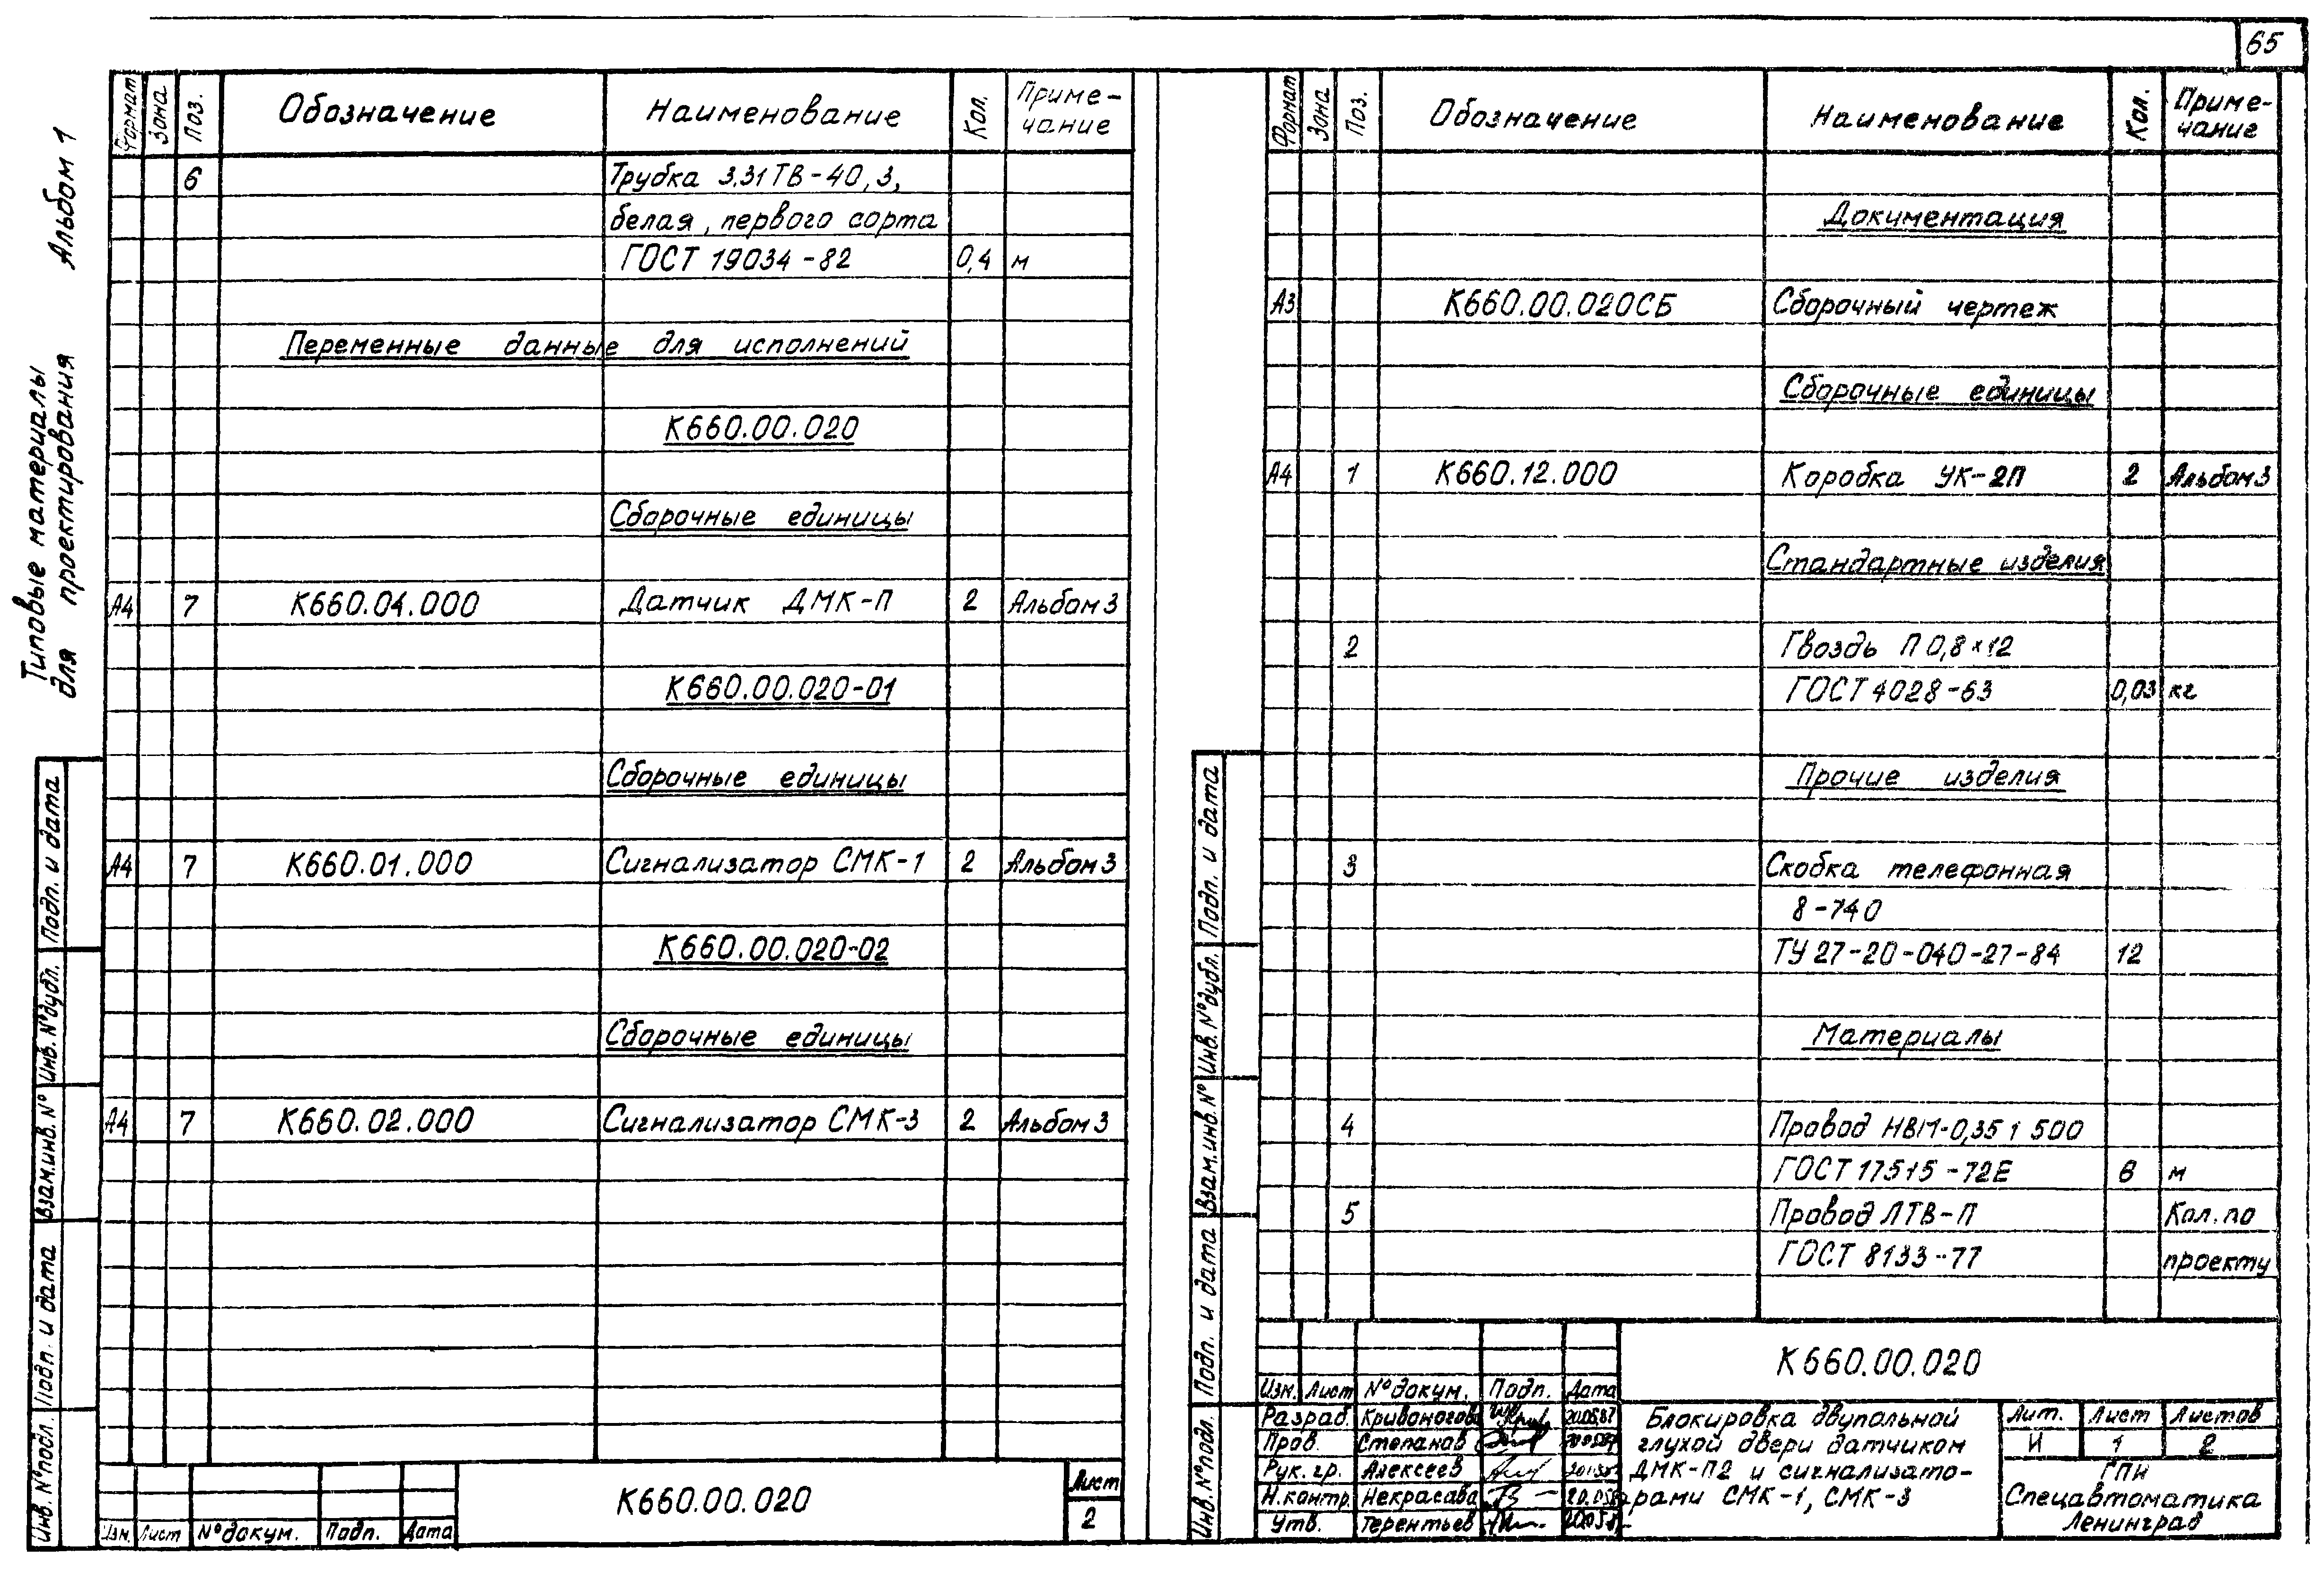 65
Типовые материалы
для проектирования
Альбом 1
Формат Зона Поз. Обозначение Наименование Кол. Приме-
чание
6 Трубка 3.31ТВ-40,3,
белая, первого сорта
ГОСТ 19034-82 0,4 м
Переменные данные для исполнений
К660.00.020
Сборочные единицы
А4 7 К660.04.000 Датчик ДМК-П 2 Альбом 3
К660.00.020-01
Сборочные единицы
А4 7 К660.01.000 Сигнализатор СМК-1 2 Альбом 3
К660.00.020-02
Сборочные единицы
А4 7 К660.02.000 Сигнализатор СМК-3 2 Альбом 3
Подп. и дата
Инв. № дубл.
Взам. инв. №
Подп. и дата
Инв. № подл.
Изм. Лист № докум. Подп. Дата
К660.00.020
Лист
2
Формат Зона Поз. Обозначение Наименование Кол. Приме-
чание
Документация
А3 К660.00.020СБ Сборочный чертеж
Сборочные единицы
А4 1 К660.12.000 Коробка УК-2П 2 Альбом 3
Стандартные изделия
2 Гвоздь П 0,8×12
ГОСТ 4028-63 0,03 кг
Прочие изделия
3 Скобка телефонная
8-740
ТУ 27-20-040-27-84 12
Материалы
4 Провод НВМ-0,35 1 500
ГОСТ 17515-72Е м
5 Провод ЛТВ-П Кол. по
ГОСТ 8133-77 проекту
Подп. и дата
Инв. № дубл.
Взам. инв. №
Подп. и дата
Инв. № подл.
К660.00.020
Изм. Лист № докум. Подп. Дата
Разраб. Кривоногова 20.05.87
Пров. Степанов
Рук. гр. Алексеев
Н. контр. Некрасова
Утв. Терентьев
Блокировка двупольной
глухой двери датчиком
ДМК-П2 и сигнализато-
рами СМК-1, СМК-3
Лит. Лист Листов
И 1 2
ГПИ
Спецавтоматика
Ленинград